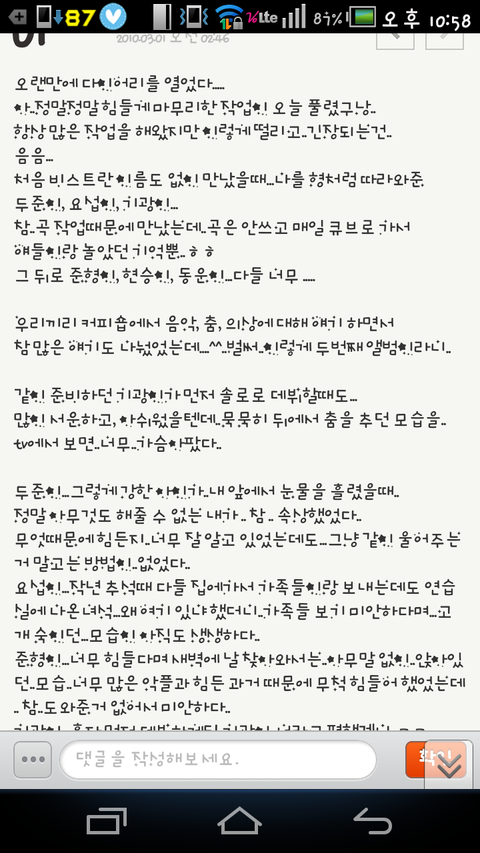 87
Lte
오후 10:58
2010.03.01 오전 02:46
오랜만에 다이어리를 열었다.....
아..정말정말 힘들게 마무리한 작업이 오늘 풀렸구낭..
항상 많은 작업을 해왔지만 이렇게 떨리고..긴장되는건..
음음...
처음 비스트란 이름도 없이 만났을때...나를 형처럼 따라와준
두준이, 요섭이, 기광이...
참..곡 작업때문에 만났는데..곡은 안쓰고 매일 큐브로 가서
얘들이랑 놀았던 기억뿐..ㅎㅎ
그 뒤로 준형이, 현승이, 동운이...다들 너무 .....
우리끼리 커피숍에서 음악, 춤, 의상에대해 얘기 하면서
참 많은 얘기도 나눴었는데....^^..벌써..이렇게 두번째 앨범이라니..
같이 준비하던 기광이가 먼저 솔로로 데뷔할때도...
많이 서운하고, 아쉬웠을텐데..묵묵히 뒤에서 춤을 추던 모습을..
tv에서 보면..너무..가슴아팠다..
두준이...그렇게 강한 아이가..내 앞에서 눈물을 흘렸을때..
정말 아무것도 해줄 수 없는 내가 .. 참 .. 속상했었다..
무엇때문에 힘든지..너무 잘 알고 있었는데도...그냥 같이 울어주는
거 말고는 방법이..없었다..
요섭이...작년 추석때 다들 집에가서 가족들이랑 보내는데도 연습
실에 나온 녀석...왜 여기 있냐 했더니..가족들 보기 미안하다며...고
개 숙이던...모습이 아직도 생생하다..
준형이...너무 힘들다며 새벽에 날 찾아와서는..아무말 없이..앉아있
던..모습..너무 많은 악플과 힘든 과거 때문에 무척 힘들어 했었는데
.. 참..도와준거 없어서 미안하다..
댓글을 작성해보세요.
확인